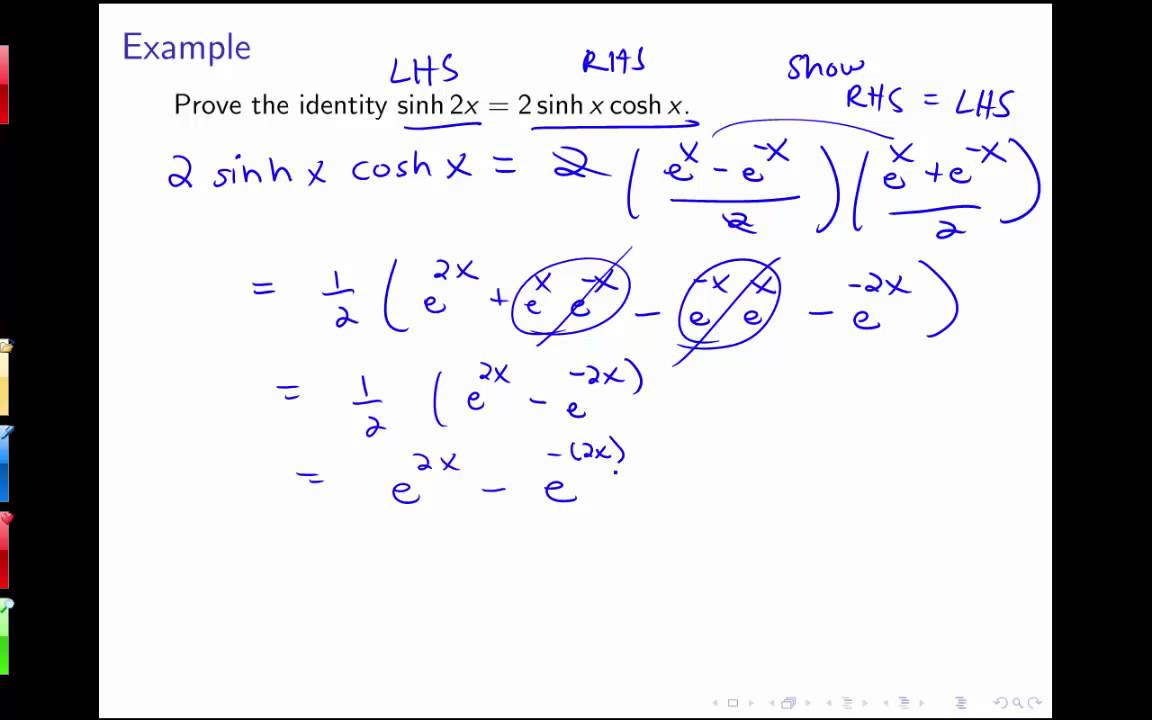 Example
LHS RHS Show
RHS = LHS
Prove the identity sinh 2x = 2 sinh x cosh x.
2 sinh x cosh x = 2 ( (e^x - e^-x)/2 ) ( (e^x + e^-x)/2 )
= 1/2 ( e^2x + e^x e^-x - e^-x e^x - e^-2x )
= 1/2 ( e^2x - e^-2x )
= e^2x - e^-(2x)